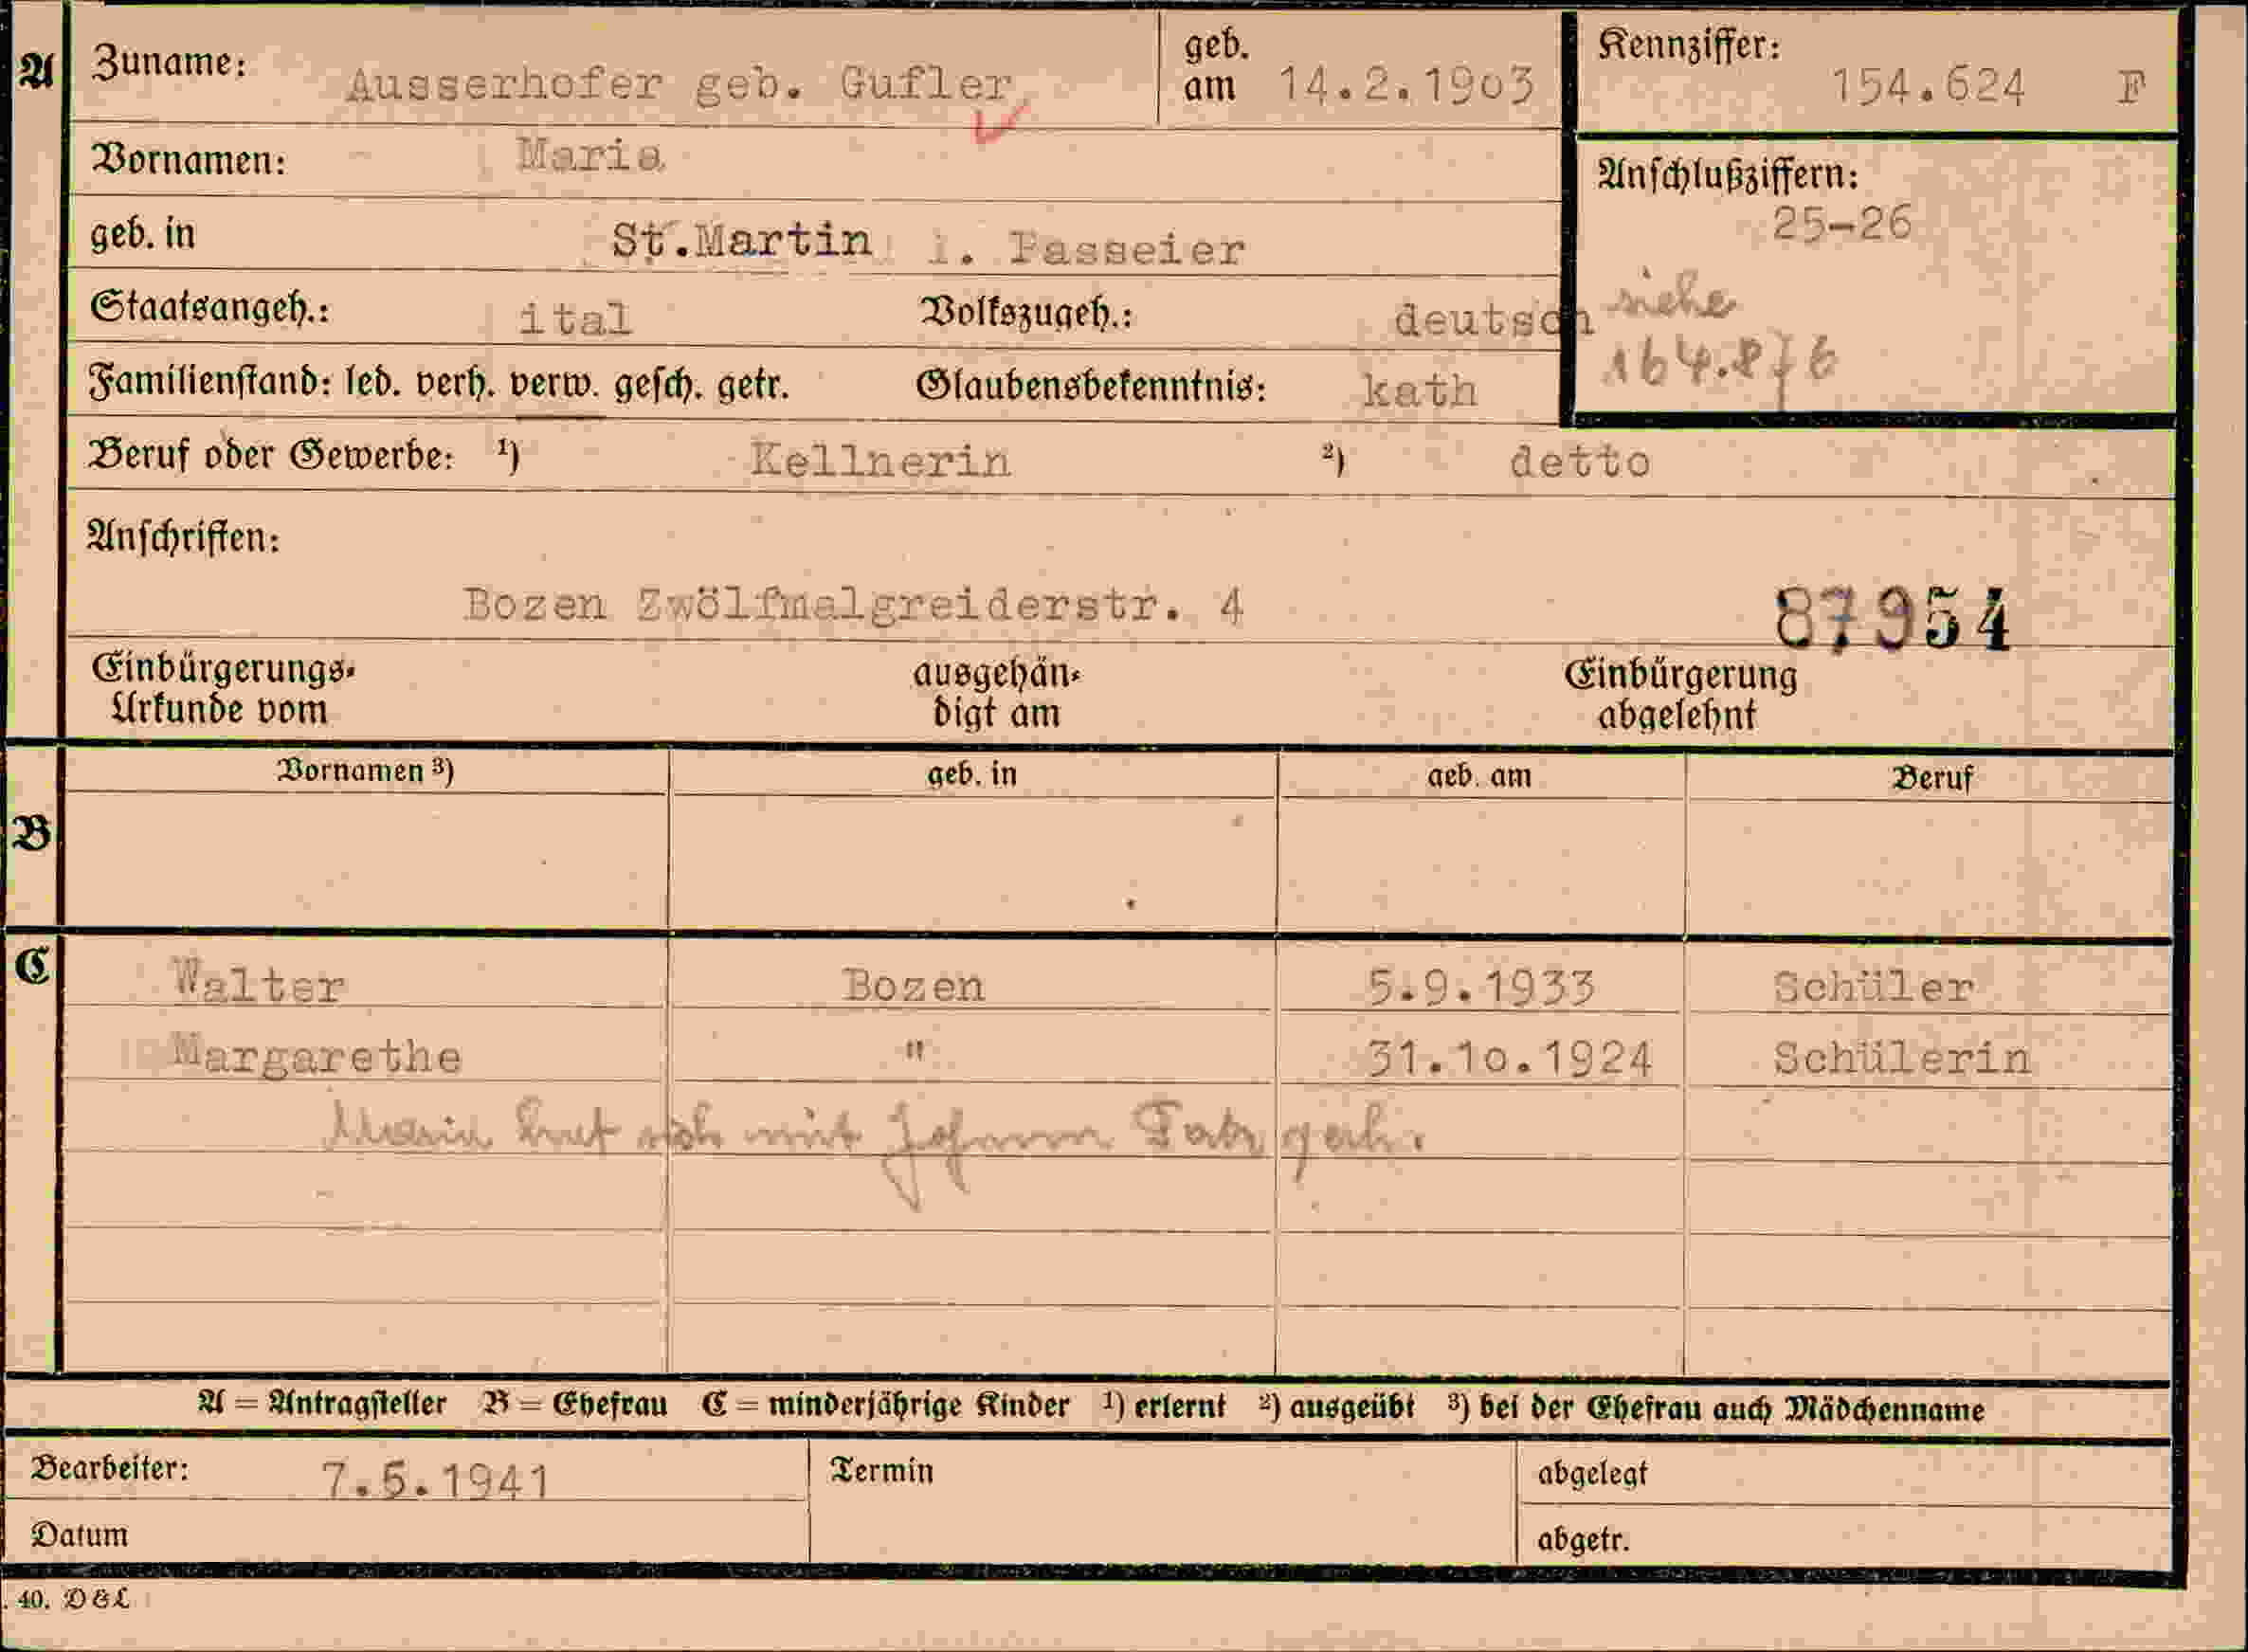 A Zuname: Ausserhofer geb. Gufler geb. am 14.2.1903 Kennziffer: 154.624 F
Vornamen: Maria
Anschlußziffern: 25-26
geb. in St.Martin i. Passeier
Staatsangeh.: ital Volkszugeh.: deutsch siehe
Familienstand: led. verh. verw. gesch. getr. Glaubensbekenntnis: kath
Beruf oder Gewerbe: 1) Kellnerin 2) detto
Anschriften:
Bozen Zwölfmalgreiderstr. 4 87954
Einbürgerungs- Urkunde vom ausgehän- digt am Einbürgerung abgelehnt
Vornamen 3) geb. in geb. am Beruf
B
C Walter Bozen 5.9.1933 Schüler
Margarethe " 31.10.1924 Schülerin
Maria hat sich mit Johann
A = Antragsteller B = Ehefrau C = minderjährige Kinder 1) erlernt 2) ausgeübt 3) bei der Ehefrau auch Mädchenname
Bearbeiter: 7.5.1941 Termin abgelegt
Datum abgetr.
40. D&L